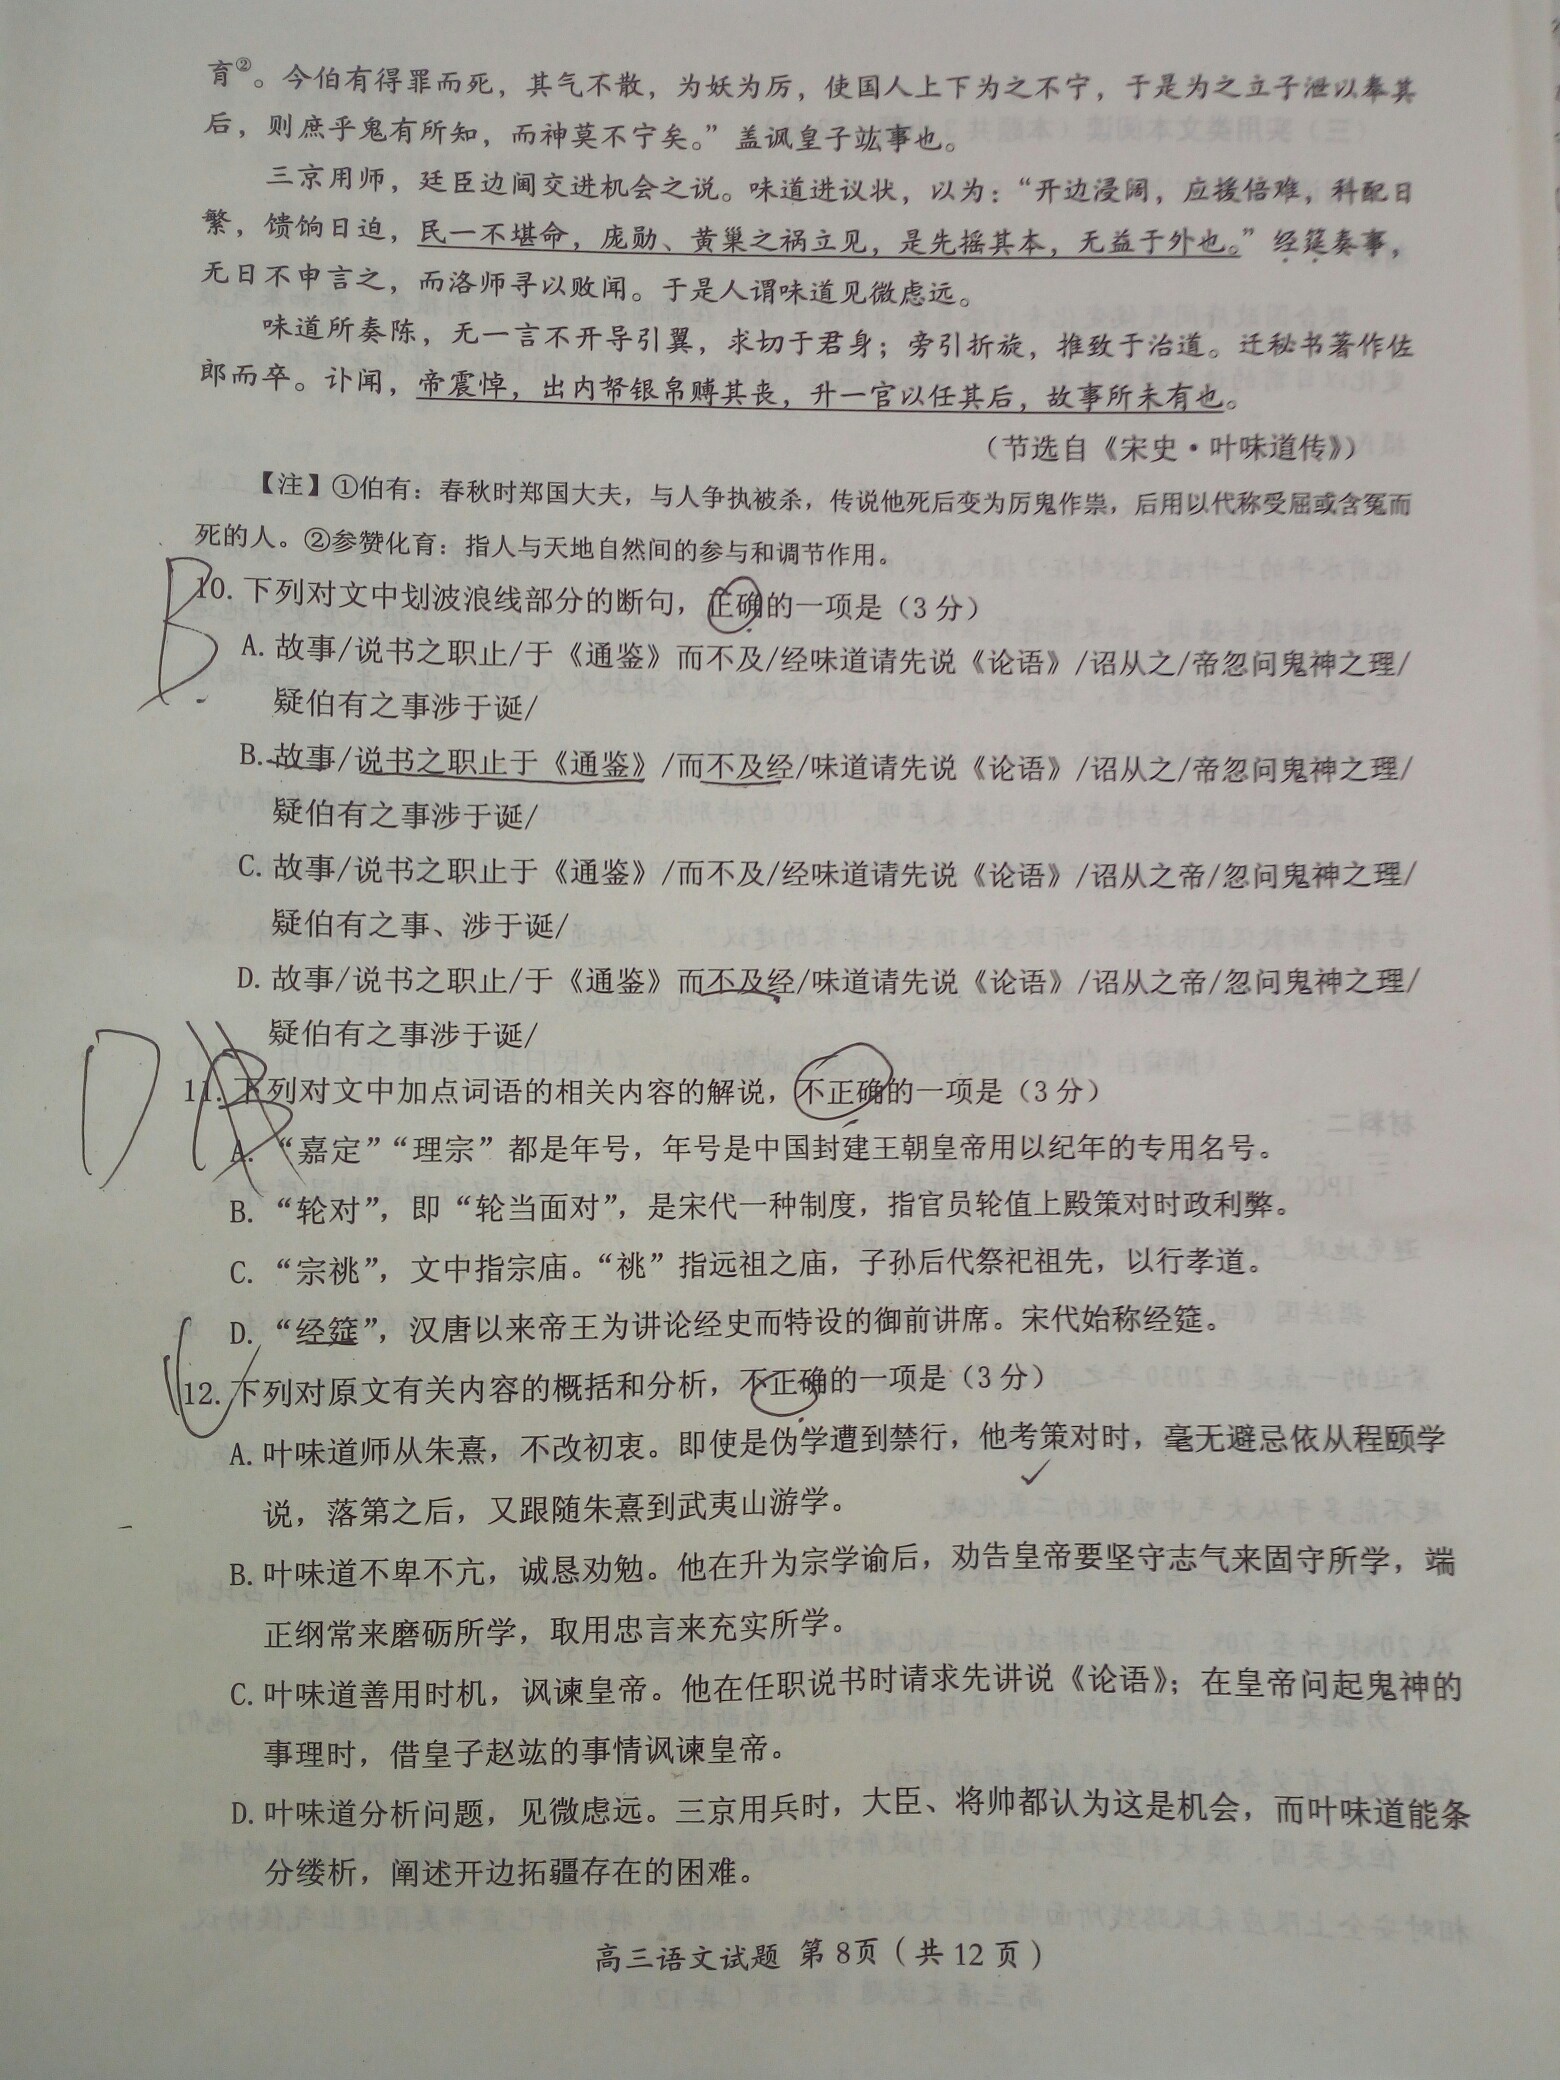 育②。今伯有得罪而死，其气不散，为妖为厉，使国人上下为之不宁，于是为之立子泄以奉其
后，则庶乎鬼有所知，而神莫不宁矣。”盖讽皇子竑事也。
三京用师，廷臣边阃交进机会之说。味道进议状，以为：“开边浸阔，应援倍难，科配日
繁，馈饷日迫，民一不堪命，庞勋、黄巢之祸立见，是先摇其本，无益于外也。”经筵奏事，
无日不申言之，而洛师寻以败闻。于是人谓味道见微虑远。
味道所奏陈，无一言不开导引翼，求切于君身；旁引折旋，推致于治道。迁秘书著作佐
郎而卒。讣闻，帝震悼，出内帑银帛赙其丧，升一官以任其后，故事所未有也。
（节选自《宋史·叶味道传》）
【注】①伯有：春秋时郑国大夫，与人争执被杀，传说他死后变为厉鬼作祟，后用以代称受屈或含冤而
死的人。②参赞化育：指人与天地自然间的参与和调节作用。
B
10. 下列对文中划波浪线部分的断句，正确的一项是（3 分）
A. 故事/说书之职止/于《通鉴》而不及/经味道请先说《论语》/诏从之/帝忽问鬼神之理/
疑伯有之事涉于诞/
B. 故事/说书之职止于《通鉴》/而不及经/味道请先说《论语》/诏从之/帝忽问鬼神之理/
疑伯有之事涉于诞/
C. 故事/说书之职止于《通鉴》/而不及/经味道请先说《论语》/诏从之帝/忽问鬼神之理/
疑伯有之事、涉于诞/
D. 故事/说书之职止/于《通鉴》而不及经/味道请先说《论语》/诏从之帝/忽问鬼神之理/
疑伯有之事涉于诞/
D
11. 下列对文中加点词语的相关内容的解说，不正确的一项是（3 分）
A. “嘉定”“理宗”都是年号，年号是中国封建王朝皇帝用以纪年的专用名号。
B. “轮对”，即“轮当面对”，是宋代一种制度，指官员轮值上殿策对时政利弊。
C. “宗祧”，文中指宗庙。“祧”指远祖之庙，子孙后代祭祀祖先，以行孝道。
D. “经筵”，汉唐以来帝王为讲论经史而特设的御前讲席。宋代始称经筵。
C
12. 下列对原文有关内容的概括和分析，不正确的一项是（3 分）
A. 叶味道师从朱熹，不改初衷。即使是伪学遭到禁行，他考策对时，毫无避忌依从程颐学
说，落第之后，又跟随朱熹到武夷山游学。
B. 叶味道不卑不亢，诚恳劝勉。他在升为宗学谕后，劝告皇帝要坚守志气来固守所学，端
正纲常来磨砺所学，取用忠言来充实所学。
C. 叶味道善用时机，讽谏皇帝。他在任职说书时请求先讲说《论语》；在皇帝问起鬼神的
事理时，借皇子赵竑的事情讽谏皇帝。
D. 叶味道分析问题，见微虑远。三京用兵时，大臣、将帅都认为这是机会，而叶味道能条
分缕析，阐述开边拓疆存在的困难。
高三语文试题 第 8页（共 12 页）